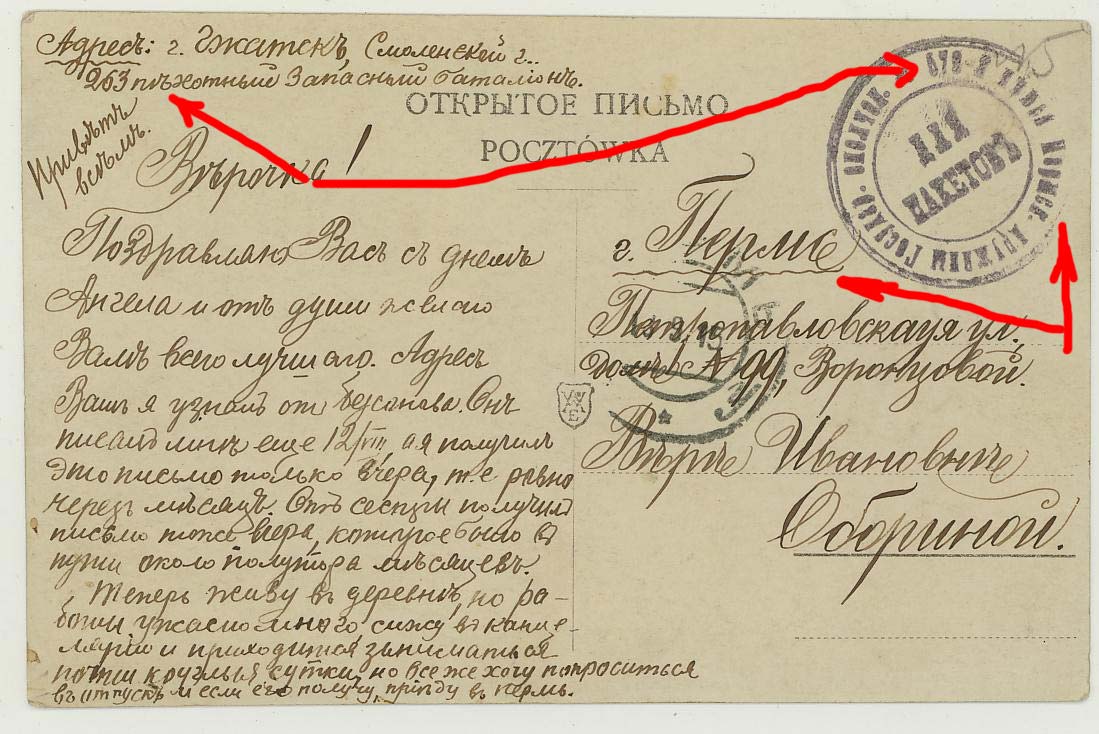 Адресъ: г. Гжатскъ, Смоленской г..
263 пѣхотный Запасный баталiонъ.
Привѣтъ
всѣмъ.
ОТКРЫТОЕ ПИСЬМО
POCZTÓWKA
Вѣрочка!
Поздравляю Васъ съ днемъ
Ангела и отъ души желаю
Вамъ всего лучшаго. Адресъ
Вашъ я узналъ от
писалъ мнѣ еще 12/VIII, а я получилъ
это письмо только вчера, т.е. ровно
черезъ мѣсяцъ. Отъ сестры получилъ
письмо тоже вчера, которое было въ
пути около полутора мѣсяцевъ.
Теперь живу въ деревнѣ, но ра-
боты ужасно много, сижу въ канце-
лярiи и приходится заниматься
почти круглыя сутки, но все же хочу попроситься
въ отпускъ и если его получу, прiѣду въ Пермь.
ДЛЯ
ПАКЕТОВЪ
г. Пермь
Петропавловская ул.,
домъ № 99, Воронцовой.
Вѣрѣ Ивановнѣ
Обориной.